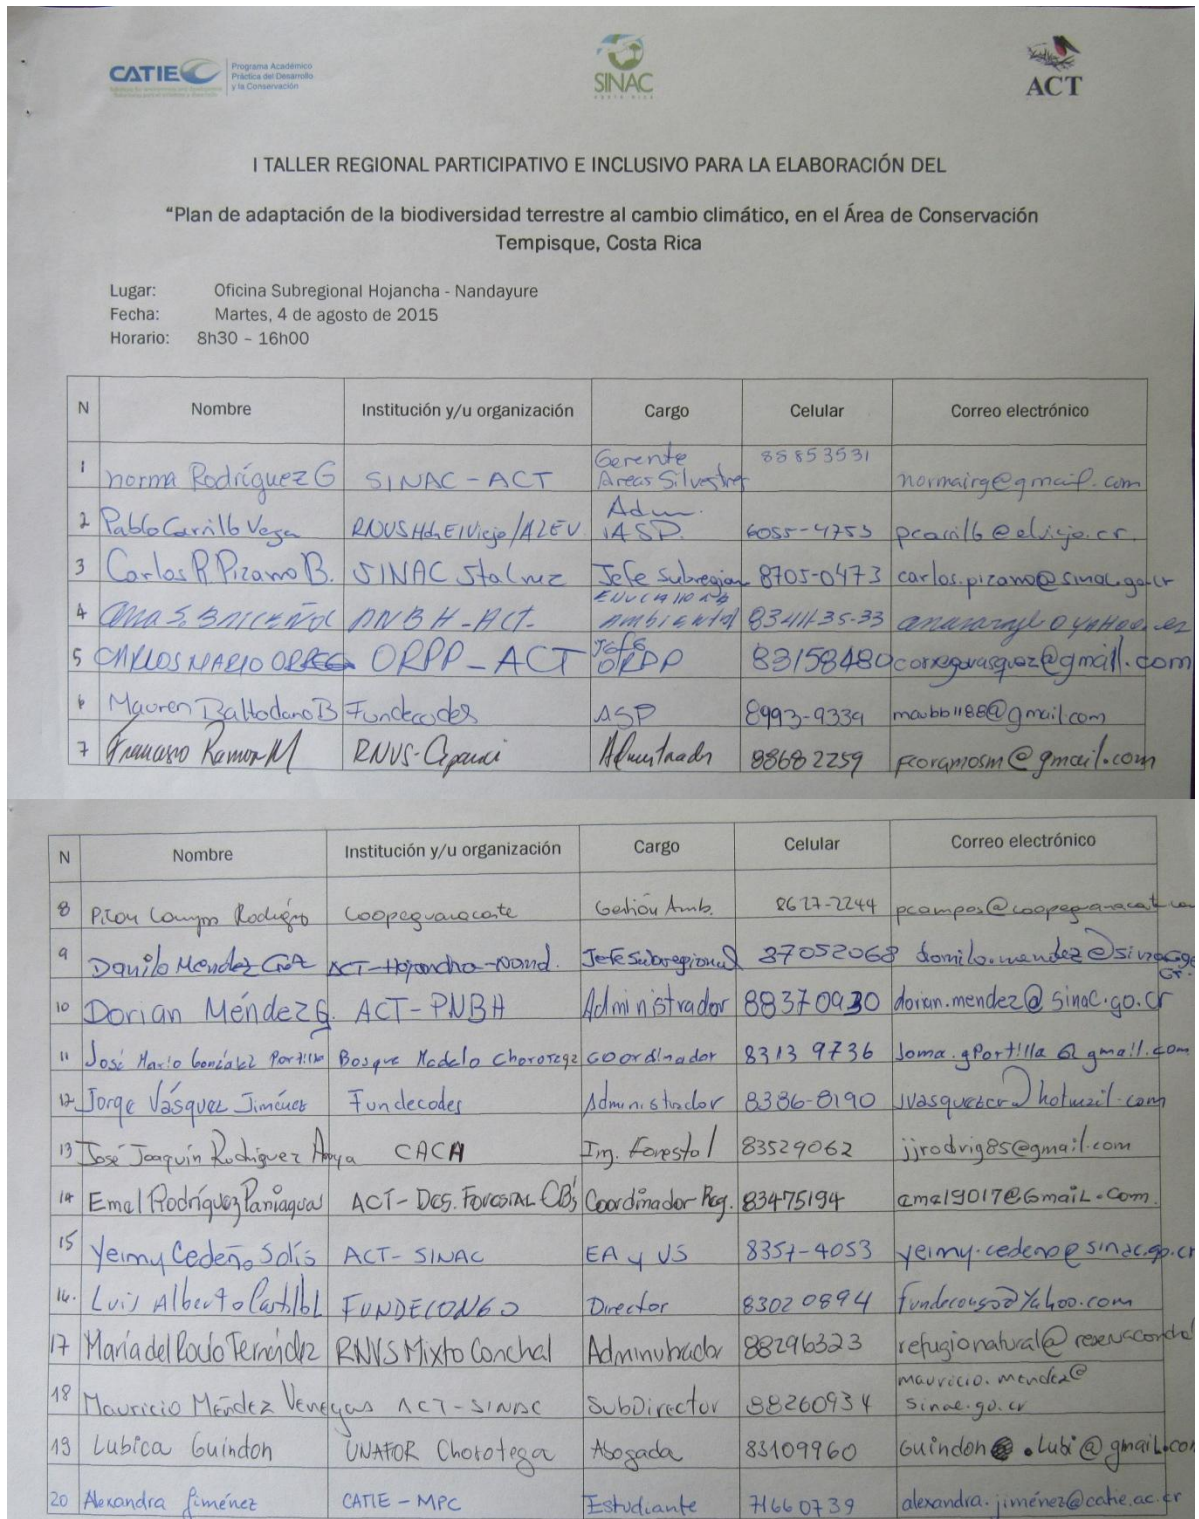 CATIE Programa Académico
Práctica del Desarrollo
y la Conservación
SINAC
COSTA RICA
ACT
I TALLER REGIONAL PARTICIPATIVO E INCLUSIVO PARA LA ELABORACIÓN DEL
"Plan de adaptación de la biodiversidad terrestre al cambio climático, en el Área de Conservación
Tempisque, Costa Rica
Lugar: Oficina Subregional Hojancha - Nandayure
Fecha: Martes, 4 de agosto de 2015
Horario: 8h30 – 16h00
N Nombre Institución y/u organización Cargo Celular Correo electrónico
1 norma Rodríguez G SINAC - ACT Gerente Areas Silvestres 88853531 normairg@gmail.com
2 Pablo Carrillo Vega RNVS Hda El Viejo/AZEV Adm. ASP. 6055-4753
3 Carlos P. Pizarro B. SINAC Sta Cruz Jefe Subregion 8705-0473 carlos.pizarro@sinac.go.cr
4 PNBH-ACT- Ambiental
5 CARLOS MARIO ORREGO ORPP-ACT Jefe ORPP 83158480 corregovasquez@gmail.com
6 Mauren Baltodano B Fundecodes ASP 8993-9339 maubb1188@gmail.com
7 Francisco Ramos M RNVS- Administrador 88682259 fcoramosm@gmail.com
N Nombre Institución y/u organización Cargo Celular Correo electrónico
8 Campos Rodrígo Coopeguanacaste Gestión Amb. 8627-2244
9 Danilo Mendez ACT-Hojancha-Nand. Jefe Subregional 87052068
10 Dorian Méndez G. ACT-PNBH Administrador 88370930 dorian.mendez@sinac.go.cr
11 José Mario González Portillo Bosque Modelo Chorotega coordinador 8313 9736
12 Jorge Vásquez Jiménez Fundecodes Administrador 8386-8190 jvasquezcr@hotmail.com
13 José Joaquín Rodriguez Anya CACH Ing. Forestal 83529062 jjrodrig85@gmail.com
14 Emel Rodríguez Paniagua ACT-Des. Forestal CB's Coordinador Reg. 83475194 emel9017@Gmail.com.
15 Yeimy Cedeño Solís ACT-SINAC EA y VS 8357-4053 yeimy.cedeno@sinac.go.cr
16. Luis Alberto Castillo L FUNDECONGO Director 83020894 fundecongo@Yahoo.com
17 María del Rocío Fernández RNVS Mixto Conchal Administrador 88296323
18 Mauricio Méndez Venegas ACT-SINAC SubDirector 88260934 mauricio.mendez@
sinac.go.cr
19 Lubica Guindon UNAFOR Chorotega Abogada 83109960 Guindon.Lubi@gmail.com
20 Alexandra Jiménez CATIE-MPC Estudiante 71660739 alexandra.jiménez@catie.ac.cr